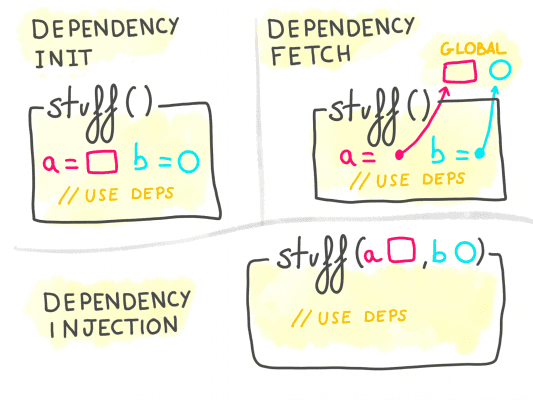 DEPENDENCY
INIT
stuff()
a = b =
// USE DEPS
DEPENDENCY
FETCH
GLOBAL
stuff()
a = b =
// USE DEPS
DEPENDENCY
INJECTION
stuff(a , b )
// USE DEPS